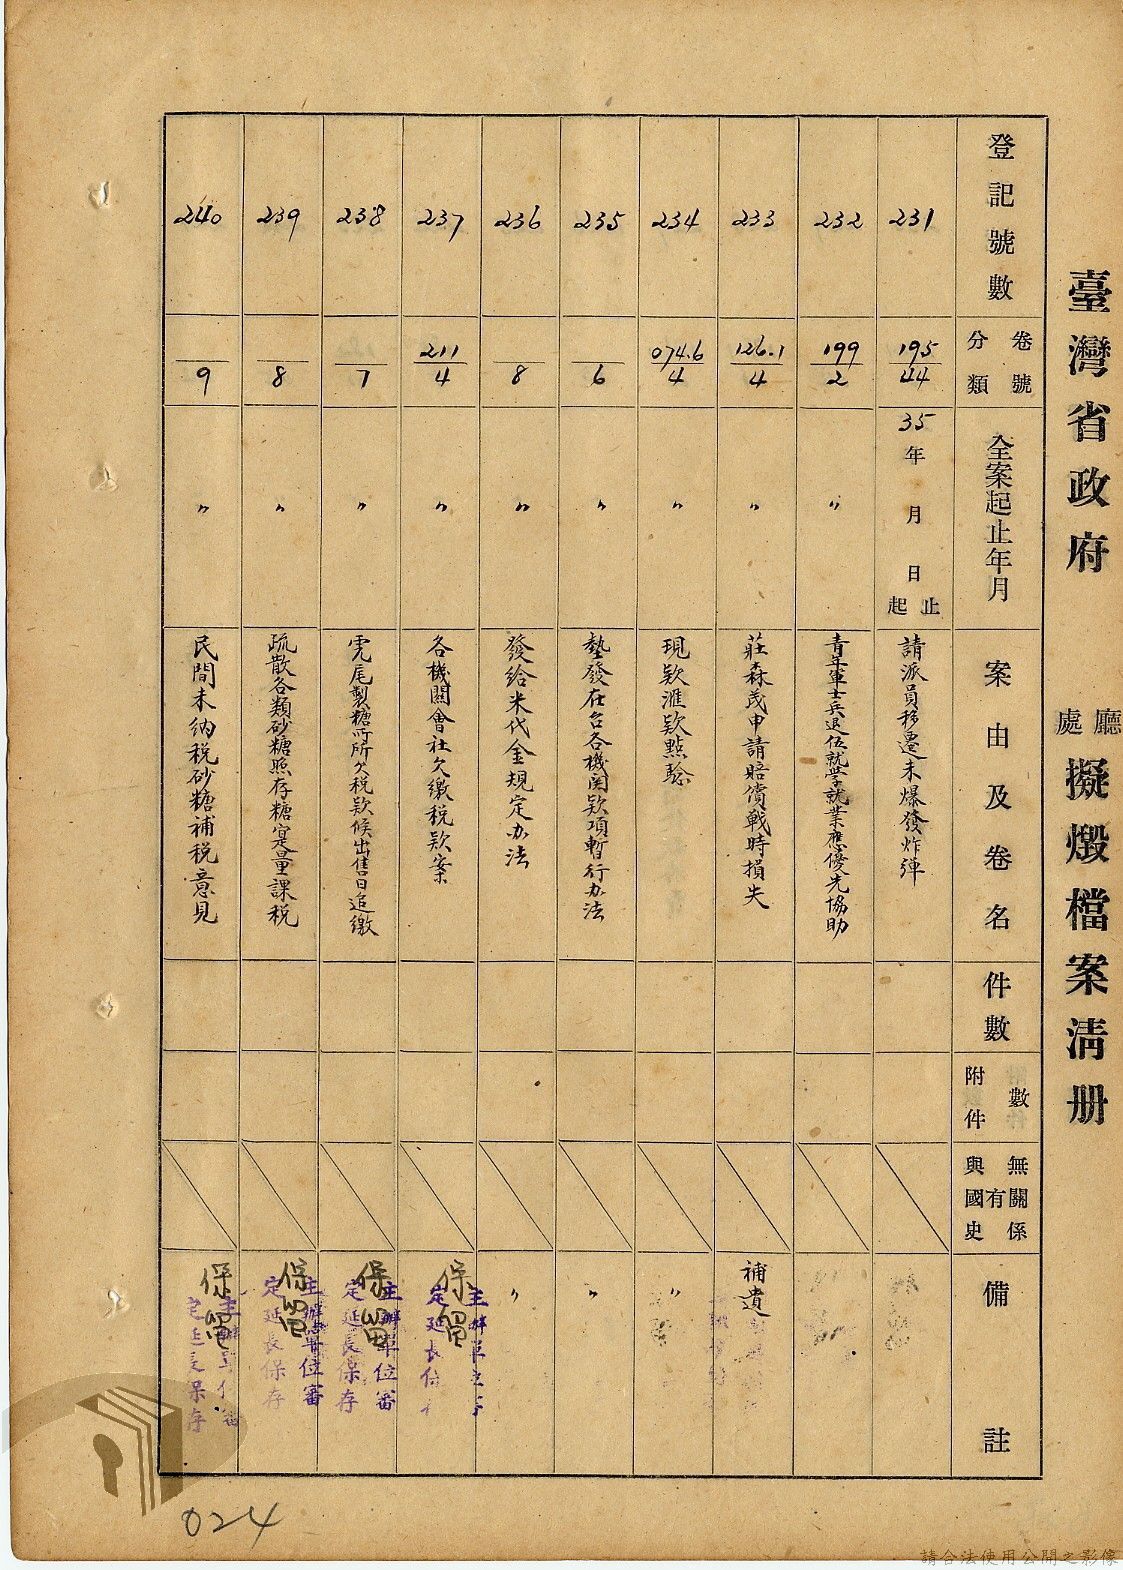 臺灣省政府 廳處 擬燬檔案清册
登記號數
卷號
分類
全案起止年月
案由及卷名
件數
附件數
與國史有無關係
備註
231
195
44
35年 月 日 起止
請派員移遷未爆發炸彈
232
199
2
〃
青年軍士兵退伍就学就業應優先協助
233
126.1
4
〃
莊森茂申請賠償戰時損失
補遺
234
074.6
4
〃
現欵滙欵點驗
〃
235
6
〃
墊發在台各機関欵項暫行办法
〃
236
8
〃
發給米代金規定办法
〃
237
211
4
〃
各機關會社欠繳税欵案
保留
主辦單位審
定延長保
238
7
〃
虎尾製糖所所欠税欵候出售日追繳
保留
主辦單位審
定延長保存
239
8
〃
疏散各類砂糖照存糖寔量課税
保留
主辦單位審
定延長保存
240
9
〃
民間未納税砂糖補税意見
保留
主辦單位審
定延長保存
024
請合法使用公開之影像